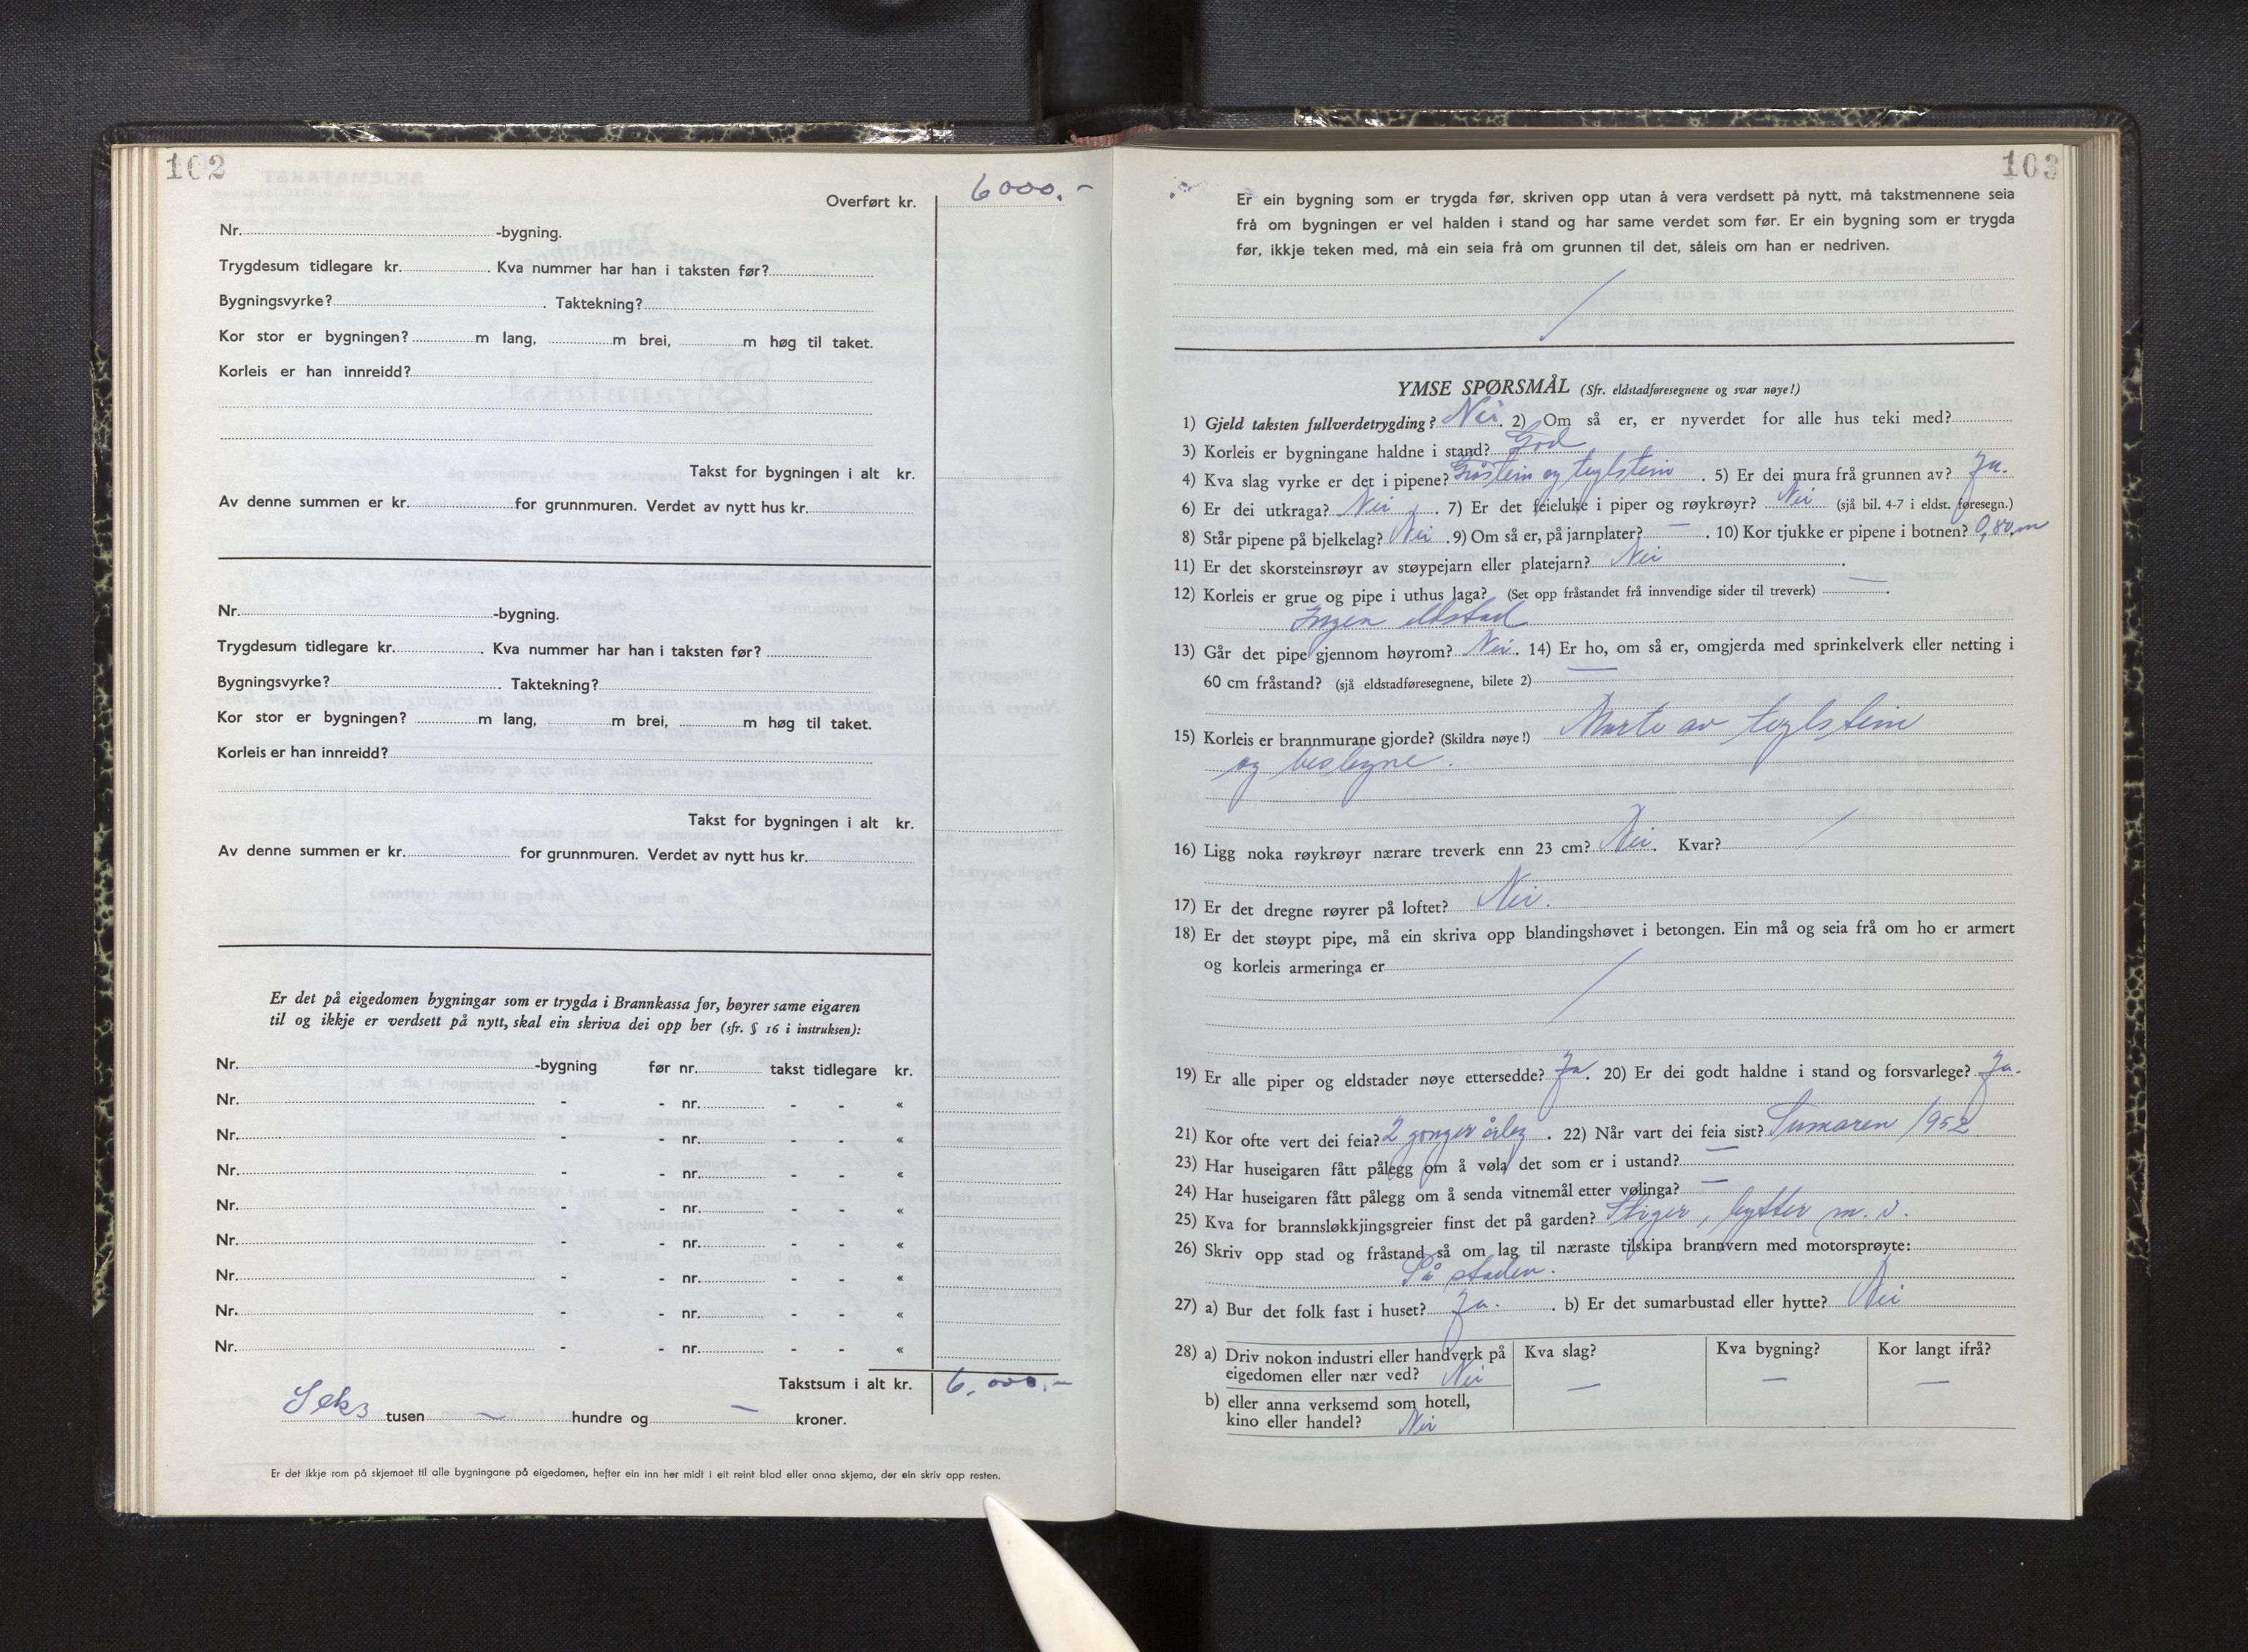 102
Overført kr. 6000.-
Nr. -bygning.
Trygdesum tidlegare kr. . Kva nummer har han i taksten før?
Bygningsvyrke? . Taktekning?
Kor stor er bygningen? m lang, m brei, m høg til taket.
Korleis er han innreidd?
Takst for bygningen i alt kr.
Av denne summen er kr. for grunnmuren. Verdet av nytt hus kr.
Nr. -bygning.
Trygdesum tidlegare kr. . Kva nummer har han i taksten før?
Bygningsvyrke? . Taktekning?
Kor stor er bygningen? m lang, m brei, m høg til taket.
Korleis er han innreidd?
Takst for bygningen i alt kr.
Av denne summen er kr. for grunnmuren. Verdet av nytt hus kr.
Er det på eigedomen bygningar som er trygda i Brannkassa før, høyrer same eigaren
til og ikkje er verdsett på nytt, skal ein skriva dei opp her (sfr. § 16 i instruksen):
Nr. -bygning før nr. takst tidlegare kr.
Nr. - - nr. - - «
Nr. - - nr. - - «
Nr. - - nr. - - «
Nr. - - nr. - - «
Nr. - - nr. - - «
Nr. - - nr. - - «
Nr. - - nr. - - «
Nr. - - nr. - - «
Takstsum i alt kr. 6.000.-
Seks tusen — hundre og — kroner.
Er det ikkje rom på skjemaet til alle bygningane på eigedomen, hefter ein inn her midt i eit reint blad eller anna skjema, der ein skriv opp resten.
103
Er ein bygning som er trygda før, skriven opp utan å vera verdsett på nytt, må takstmennene seia
frå om bygningen er vel halden i stand og har same verdet som før. Er ein bygning som er trygda
før, ikkje teken med, må ein seia frå om grunnen til det, såleis om han er nedriven.
/
YMSE SPØRSMÅL (Sfr. eldstadføresegnene og svar nøye!)
1) Gjeld taksten fullverdetrygding? Nei. 2) Om så er, er nyverdet for alle hus teki med?
3) Korleis er bygningane haldne i stand? God
4) Kva slag vyrke er det i pipene? Gråstein og teglstein . 5) Er dei mura frå grunnen av? Ja.
6) Er dei utkraga? Nei . 7) Er det feieluke i piper og røykrøyr? Nei (sjå bil. 4-7 i eldst. føresegn.)
8) Står pipene på bjelkelag? Nei . 9) Om så er, på jarnplater? — . 10) Kor tjukke er pipene i botnen? 0,80 m
11) Er det skorsteinsrøyr av støypejarn eller platejarn? Nei .
12) Korleis er grue og pipe i uthus laga? (Set opp fråstandet frå innvendige sider til treverk) — .
Ingen eldstad
13) Går det pipe gjennom høyrom? Nei. 14) Er ho, om så er, omgjerda med sprinkelverk eller netting i
60 cm fråstand? (sjå eldstadføresegnene, bilete 2) —
15) Korleis er brannmurane gjorde? (Skildra nøye!) Murte av teglstein
og beslegne.
16) Ligg noka røykrøyr nærare treverk enn 23 cm? Nei. Kvar? /
17) Er det dregne røyrer på loftet? Nei.
18) Er det støypt pipe, må ein skriva opp blandingshøvet i betongen. Ein må og seia frå om ho er armert
og korleis armeringa er /
19) Er alle piper og eldstader nøye ettersedde? Ja. 20) Er dei godt haldne i stand og forsvarlege? Ja.
21) Kor ofte vert dei feia? 2 gonger årleg . 22) Når vart dei feia sist? Sumaren 1952
23) Har huseigaren fått pålegg om å vøla det som er i ustand? —
24) Har huseigaren fått pålegg om å senda vitnemål etter vølinga? —
25) Kva for brannsløkkjingsgreier finst det på garden? Stiger, bytter m. v.
26) Skriv opp stad og fråstand så om lag til næraste tilskipa brannvern med motorsprøyte:
På staden.
27) a) Bur det folk fast i huset? Ja. . b) Er det sumarbustad eller hytte? Nei
28) a) Driv nokon industri eller handverk på Kva slag? Kva bygning? Kor langt ifrå?
eigedomen eller nær ved? Nei — — —
b) eller anna verksemd som hotell,
kino eller handel? Nei